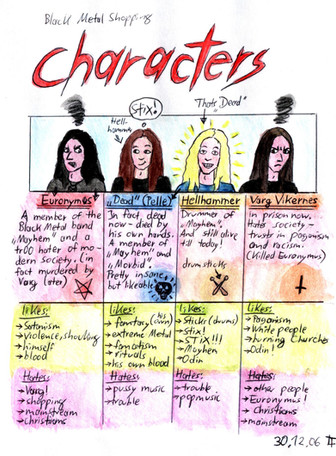 Black Metal Shopping
Characters
That's "Dead"
Stix!
Hell-
hammer
Euronymus
A member of the
Black Metal band
"Mayhem" and a
true hater of mo-
dern society. (in
fact murdered by
Varg later)
"Dead" (Pelle)
In fact dead
now - died by
his own hands.
A member of
"Mayhem" and
"Morbid"
Pretty insane,
but likeable
Hellhammer
Drummer of
"Mayhem".
And still alive
till today!
drumsticks
Varg Vikernes
In prison now.
Hates society -
trusts in paganism
and racism.
(Killed Euronymus)
likes:
→ Satanism
→ Violence, shocking
→ himself
→ blood
likes:
→ extreme Metal
→ fanatism
→ rituals
→ his own blood
likes:
→ Sticks (drums)
→ Stix!
→ STIX!!!
→ Mayhem
→ Odin
likes:
→ Paganism
→ White people
→ burning Churches
→ Odin!
Hates:
→ Varg!
→ shopping
→ mainstream
→ Christians
Hates:
→ pussy music
→ trouble
Hates:
→ trouble
→ popmusic
Hates:
→ other people
→ Euronymus!
→ Christians
→ mainstream
30.12.06